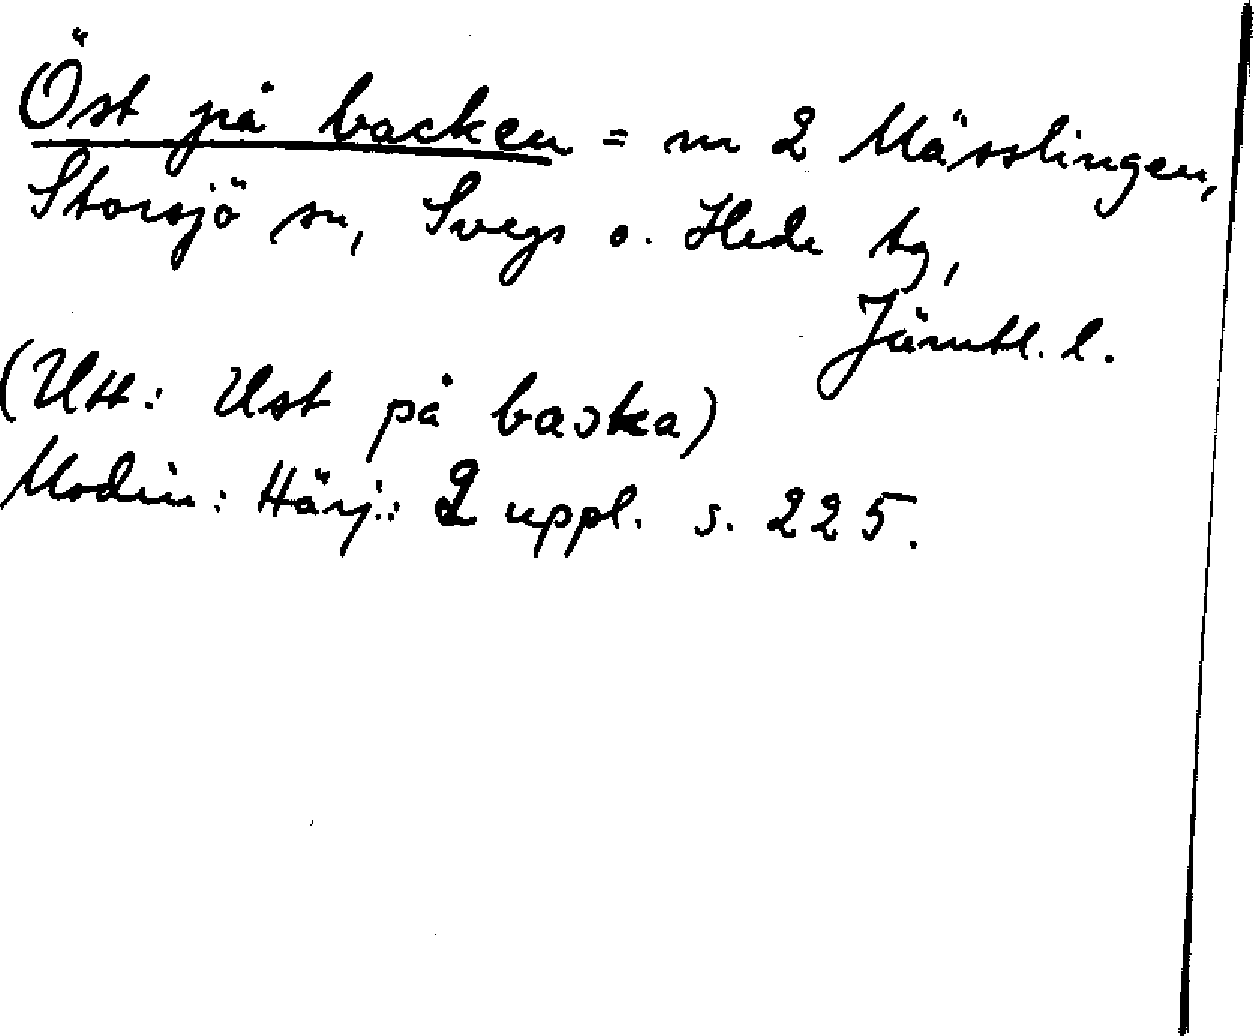 Öst på backen = nr 2 Mässlingen,
Storsjö sn, Svegs o. Hede tg,
Jämtl. l.
(Utt: Ust på backa)
Modin: Härj.: 2 uppl. s. 225.